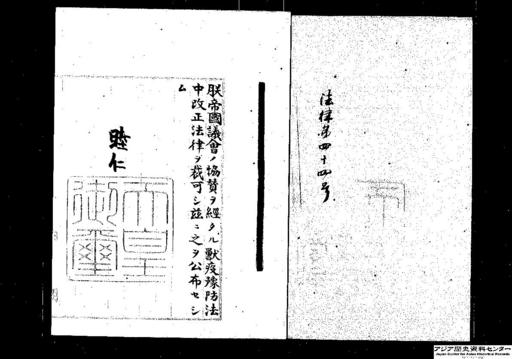 法律第四十四号
朕帝國議會ノ協賛ヲ經タル獸疫豫防法
中改正法律ヲ裁可シ茲ニ之ヲ公布セシ
ム
睦仁
天皇
御璽
アジア歴史資料センター
Japan Center for Asian Historical Records